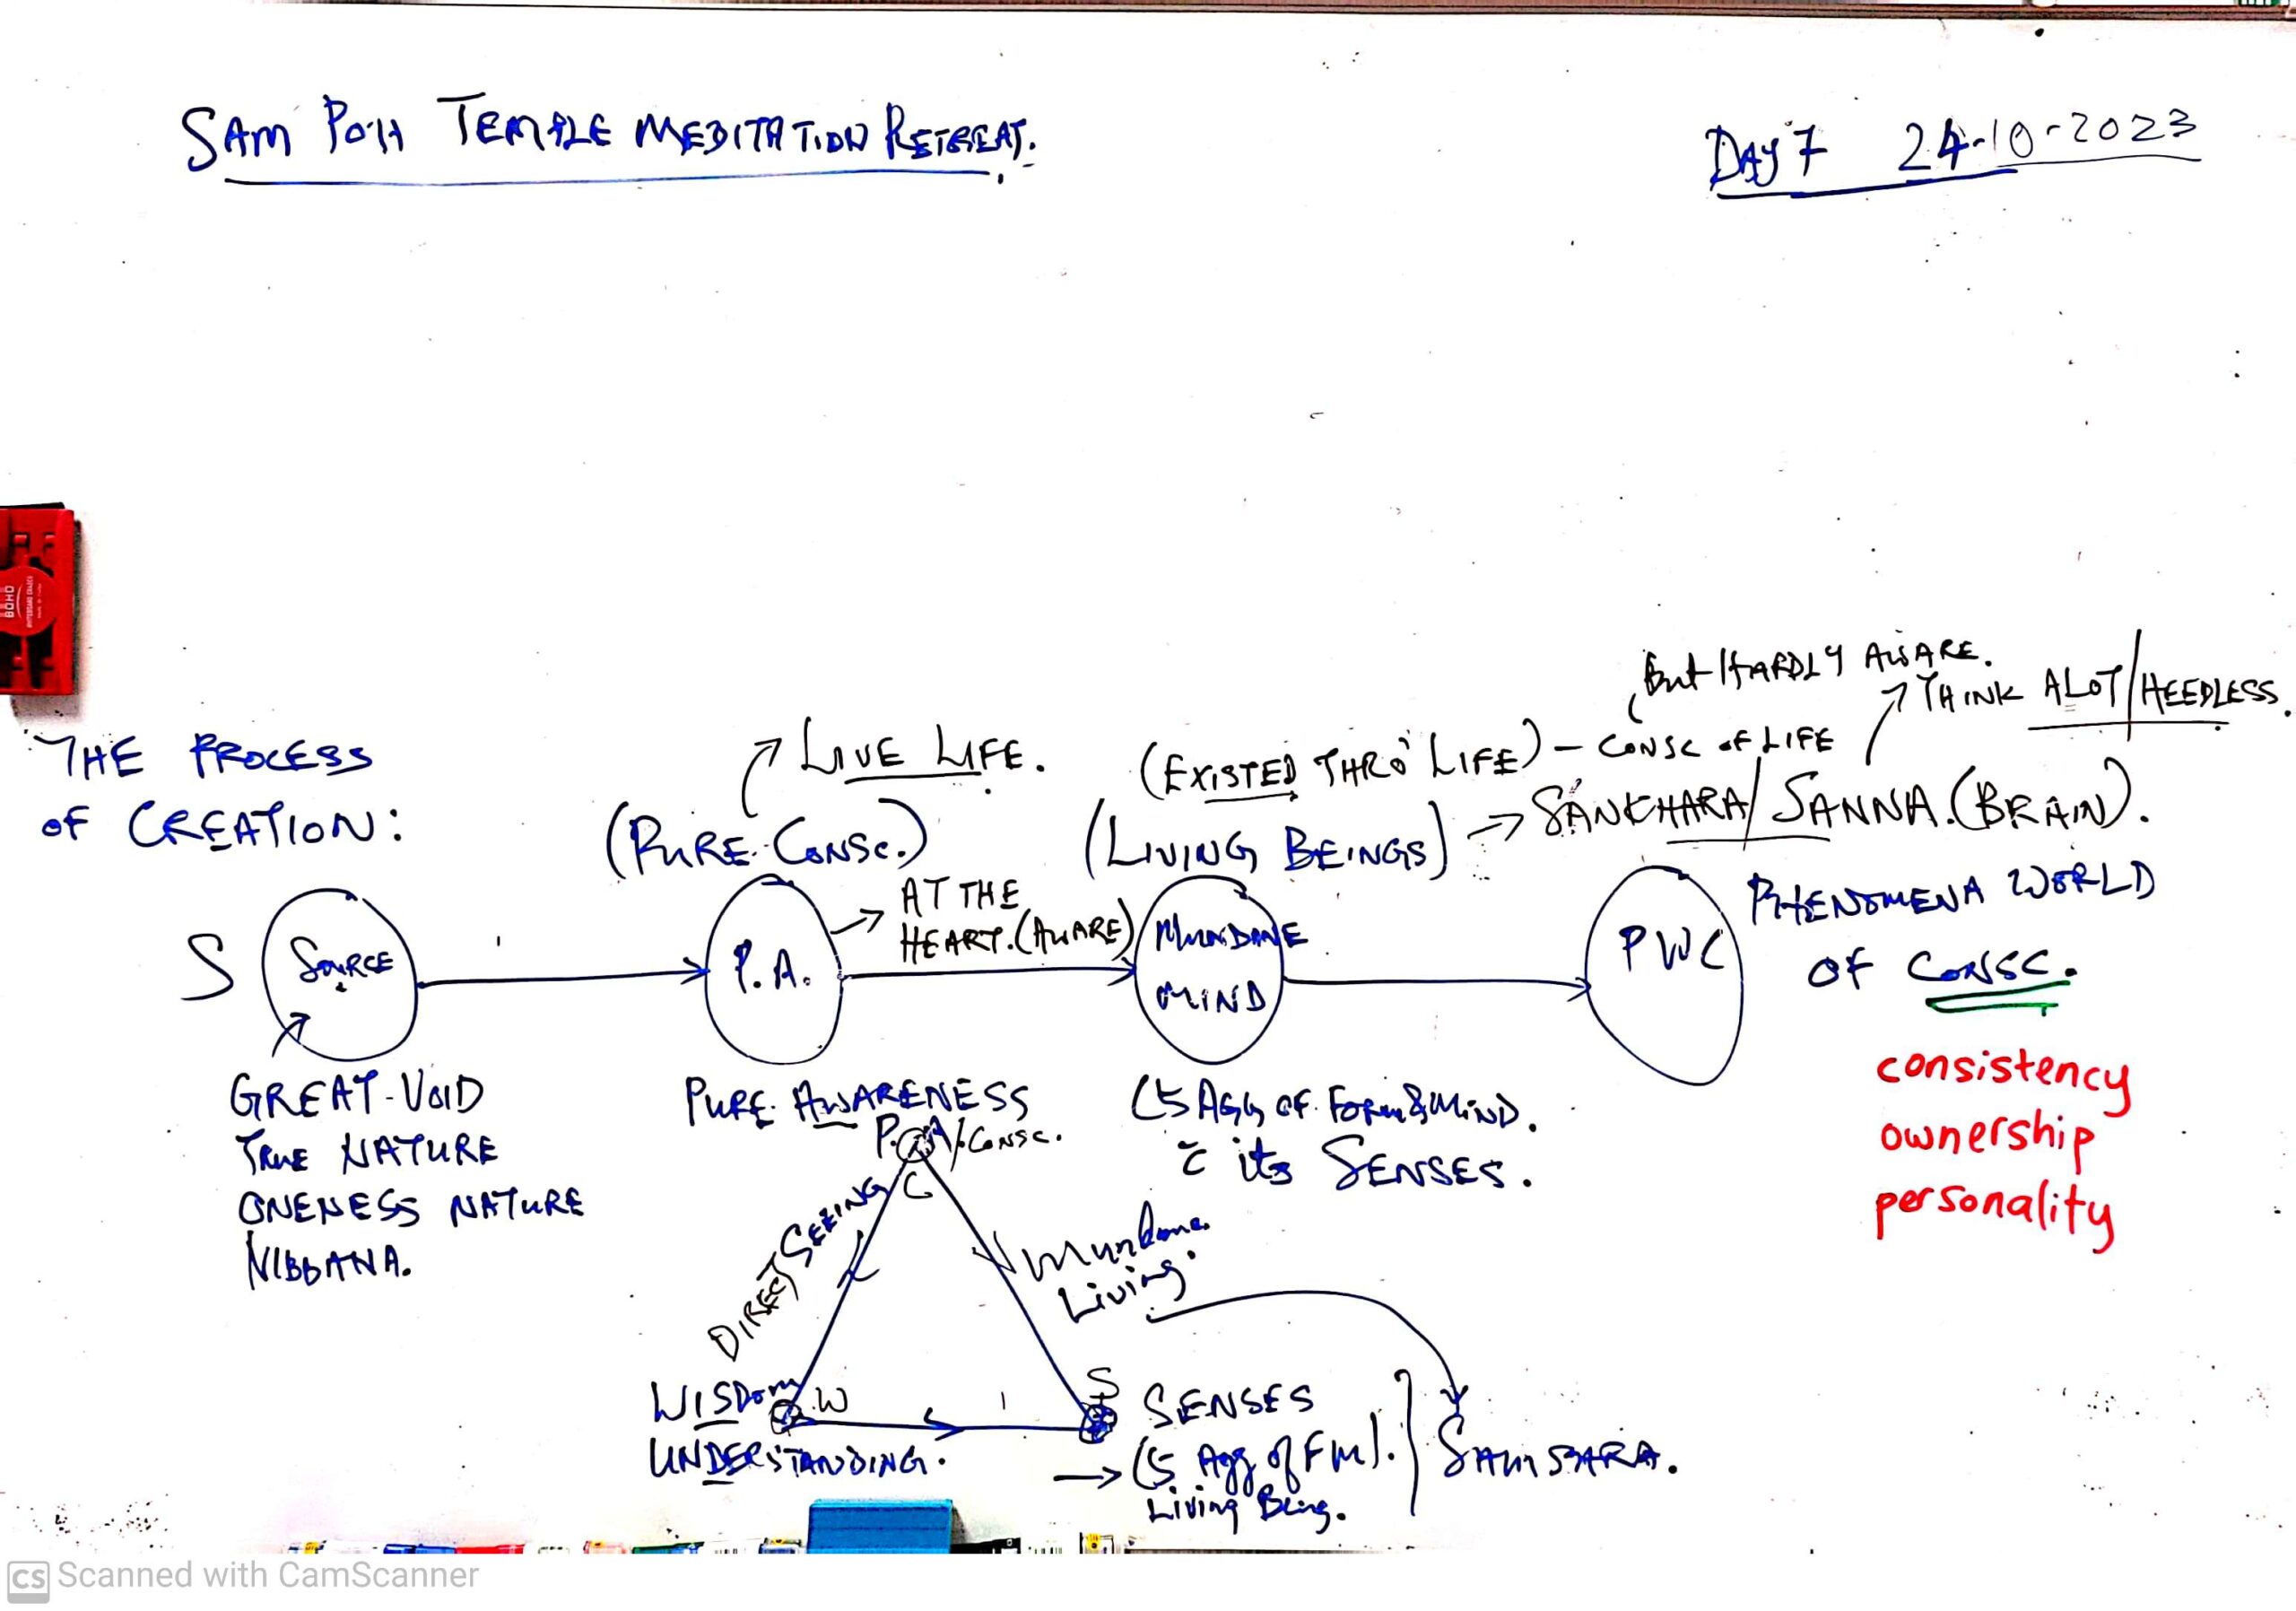 SAM POH TEMPLE MEDITATION RETREAT.
DAY 7 24-10-2023
But HARDLY AWARE.
THINK ALOT/HEEDLESS.
THE PROCESS
OF CREATION:
LIVE LIFE.
(EXISTED THRO' LIFE) – CONSC OF LIFE
(PURE CONSC.)
(LIVING BEINGS) → SANKHARA/SANNA. (BRAIN).
AT THE
HEART. (AWARE)
S
SOURCE
P.A.
MUNDANE
MIND
PWC
PHENOMENA WORLD
OF CONSC.
GREAT-VOID
TRUE NATURE
ONENESS NATURE
NIBBANA.
PURE AWARENESS
P.A/CONSC.
C
(5 AGG OF FORM & MIND.
c̄ its SENSES.
consistency
ownership
personality
DIRECT SEEING
Mundane
Living.
WISDOM W
UNDERSTANDING.
S
SENSES
→ (5 Agg of FM).
Living Being.
SAMSARA.
BOHO
CS Scanned with CamScanner